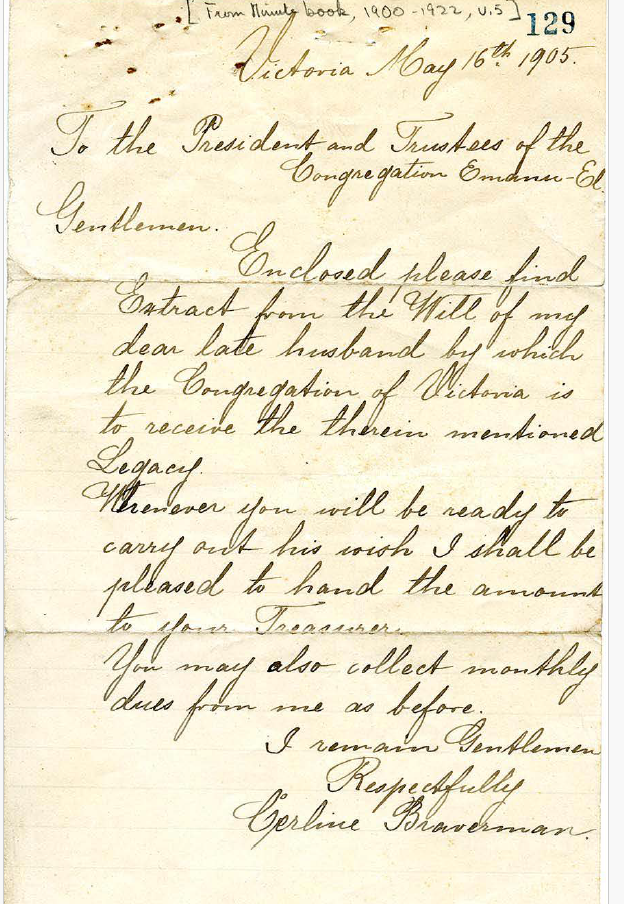 [From Minute book, 1900-1922, v.5]
129
Victoria May 16th 1905.
To the President and Trustees of the
Congregation Emanu-El
Gentlemen.
Enclosed please find
Extract from the Will of my
dear late husband by which
the Congregation of Victoria is
to receive the therein mentioned
Legacy.
Whenever you will be ready to
carry out his wish I shall be
pleased to hand the amount
to your Treasurer.
You may also collect monthly
dues from me as before.
I remain Gentlemen
Respectfully
Braverman.